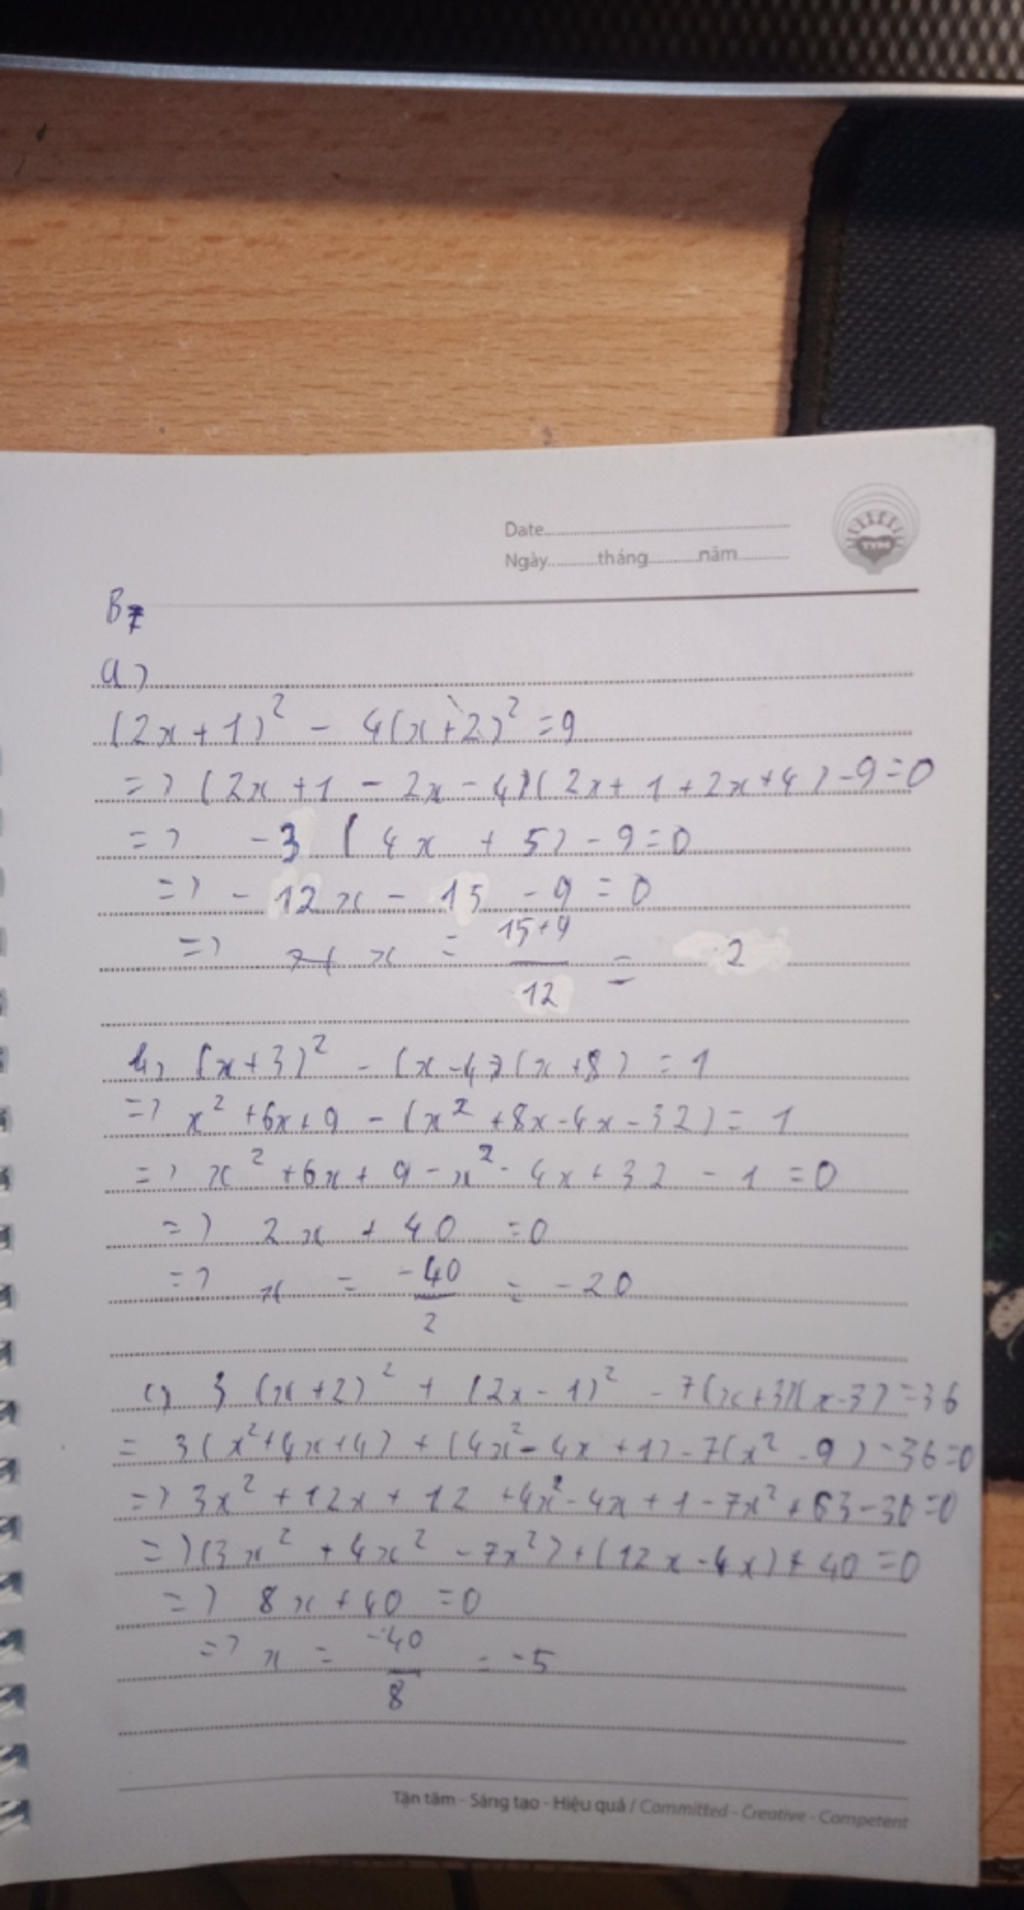 Date
Ngày tháng năm
TYM
B7
a)
(2x+1)² - 4(x+2)² = 9
=> (2x+1 - 2x-4)(2x+1+2x+4)-9=0
=> -3 (4x + 5) - 9 = 0
=> - 12x - 15 - 9 = 0
=> x = 15+9/12 = 2
b) (x+3)² - (x-4)(x+8) = 1
=> x² +6x+9 - (x² +8x-4x-32) = 1
=> x² +6x+9-x²-4x+32 - 1 =0
=> 2x + 40 =0
=> x = -40/2 = -20
c) 3 (x+2)² + (2x-1)² - 7(x+3)(x-3) =36
= 3(x²+4x+4) + (4x²-4x+1)-7(x²-9)-36=0
=> 3x² +12x+12 +4x²-4x+1-7x²+63-36=0
=> (3x² +4x² -7x²)+(12x-4x)+40=0
=> 8x+40 =0
=> x = -40/8 = -5
Tận tâm - Sáng tạo - Hiệu quả / Committed - Creative - Competent